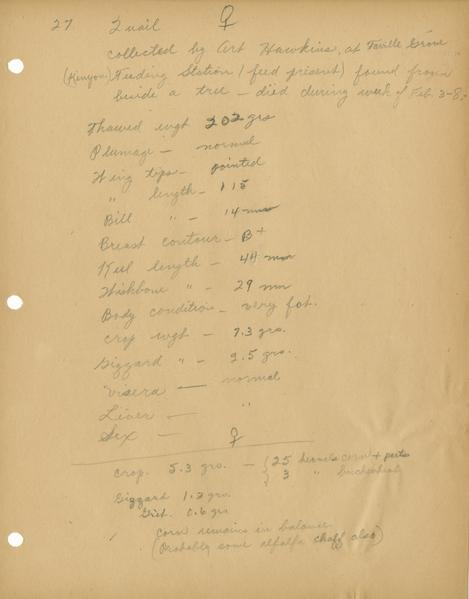 27 Quail ♀
collected by Art Hawkins, at Faville Grove
(Kenyon) Feeding Station (feed present) found frozen
beside a tree - died during week of Feb. 3-8,
Thawed wght 202 grs
Plumage - normal
Wing tips - pointed
" length - 115
Bill " - 14 mm
Breast contour - B+
Keel length - 44 mm
Wishbone " - 29 mm
Body condition - very fat.
Crop wght - 7.3 grs.
Gizzard " - 9.5 grs.
Visera - normal
Liver - "
Sex - ♀
Crop. 5.3 grs. - { 25 kernels corn + parts
3 " buckwheat
Gizzard 1.2 grs.
Grit. 0.6 grs
corn remains in balance
(Probably some alfalfa chaff also)